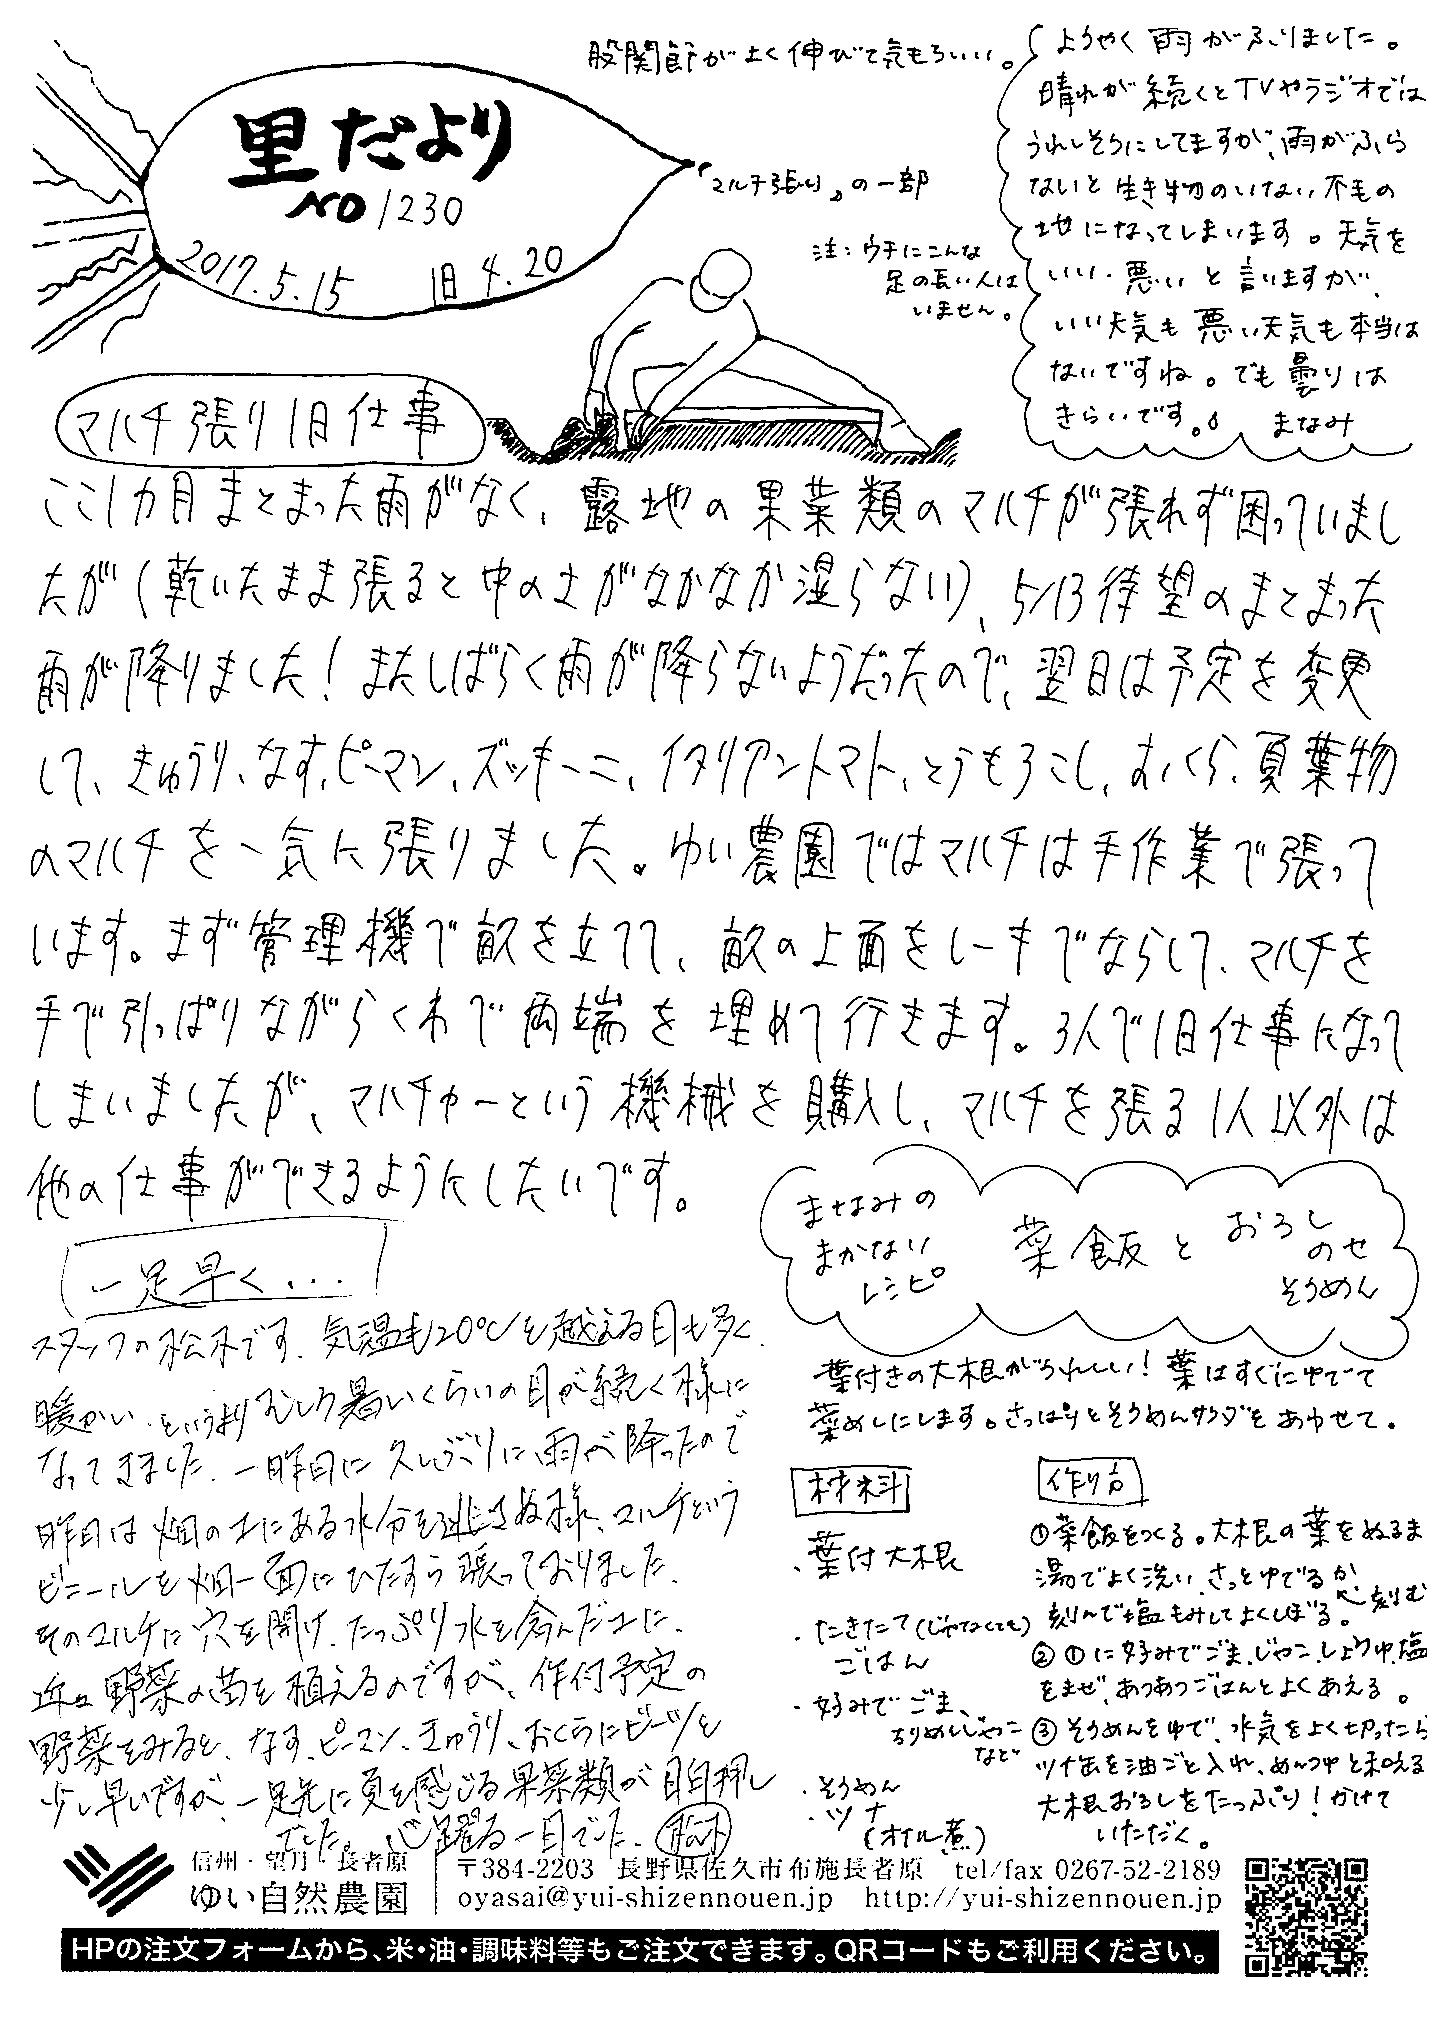 里だより
NO 1230
2017.5.15 旧4.20
股関節がよく伸びて気もちいい。
「マルチ張り」の一部
注：ウチにこんな
足の長い人は
いません。
ようやく雨がふりました。
晴れが続くとTVやラジオでは
うれしそうにしてますが、雨がふら
ないと生き物のいない不毛の
地になってしまいます。天気を
いい・悪いと言いますが、
いい天気も悪い天気も本当は
ないですね。でも曇りは
きらいです。
まなみ
マルチ張り1日仕事
ここ1カ月まとまった雨がなく、露地の果菜類のマルチが張れず困っていまし
たが(乾いたまま張ると中の土がなかなか湿らない)、5/13待望のまとまった
雨が降りました！またしばらく雨が降らないようだったので、翌日は予定を変更
して、きゅうり、なす、ピーマン、ズッキーニ、イタリアントマト、とうもろこし、おくら、夏葉物
のマルチを一気に張りました。ゆい農園ではマルチは手作業で張って
います。まず管理機で畝を立てて、畝の上面をレーキでならして、マルチを
手で引っぱりながらくわで両端を埋めて行きます。3人で1日仕事になって
しまいましたが、マルチャーという機械を購入し、マルチを張る1人以外は
他の仕事ができるようにしたいです。
一足早く...
スタッフの松木です。気温も20℃を越える日も多く、
暖かい、というよりむしろ暑いくらいの日が続く様に
なってきました。一昨日に久しぶりに雨が降ったので
昨日は畑の土にある水分を逃さぬ様、マルチという
ビニールを畑一面にひたすら張っておりました。
そのマルチに穴を開け、たっぷり水を含んだ土に、
近々野菜の苗を植えるのですが、作付予定の
野菜をみると、なす、ピーマン、きゅうり、おくらにビーツと
少し早いですが、一足先に夏を感じる果菜類が目白押し
でした。心躍る一日でした。
まなみの
まかない
レシピ
菜飯とおろし
のせ
そうめん
葉付きの大根がうれしい！葉はすぐにゆでて
菜めしにします。さっぱりとそうめんサラダをあわせて。
材料
・葉付大根
・たきたて(じゃなくても)
ごはん
・好みでごま、
ちりめんじゃこ
など
・そうめん
・ツナ
(オイル煮)
作り方
①菜飯をつくる。大根の葉をぬるま
湯でよく洗い、さっとゆでるか
刻んで塩もみしてよくしぼる。刻む
②①に好みでごま、じゃこ、しょうゆ、塩
をまぜ、あつあつごはんとよくあえる。
③そうめんをゆで、水気をよく切ったら
ツナ缶を油ごと入れ、めんつゆと和える
大根おろしをたっぷり！かけて
いただく。
信州・望月・長者原
ゆい自然農園
〒384-2203 長野県佐久市布施長者原 tel/fax 0267-52-2189
oyasai@yui-shizennouen.jp http://yui-shizennouen.jp
HPの注文フォームから、米・油・調味料等もご注文できます。QRコードもご利用ください。